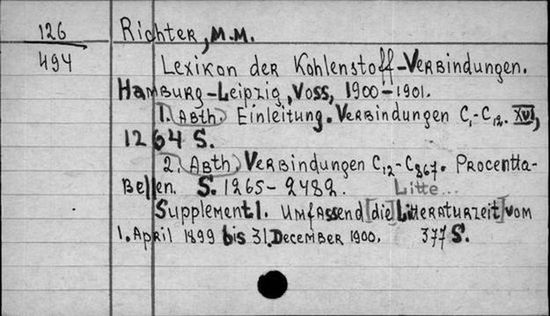 126
494
Richter, M.M.
Lexikon der Kohlenstoff-Verbindungen.
Hamburg-Leipzig, Voss, 1900-1901.
1. (Abth.) Einleitung. Verbindungen C1-C12. XVI,
1264 S.
2. (Abth) Verbindungen C12-C867. Procenta-
Bellen. S. 1265-2482. Litte...
Supplement 1. Umfassend [die] Litteraturzeit vom
1. April 1899 bis 31. December 1900. 377 S.